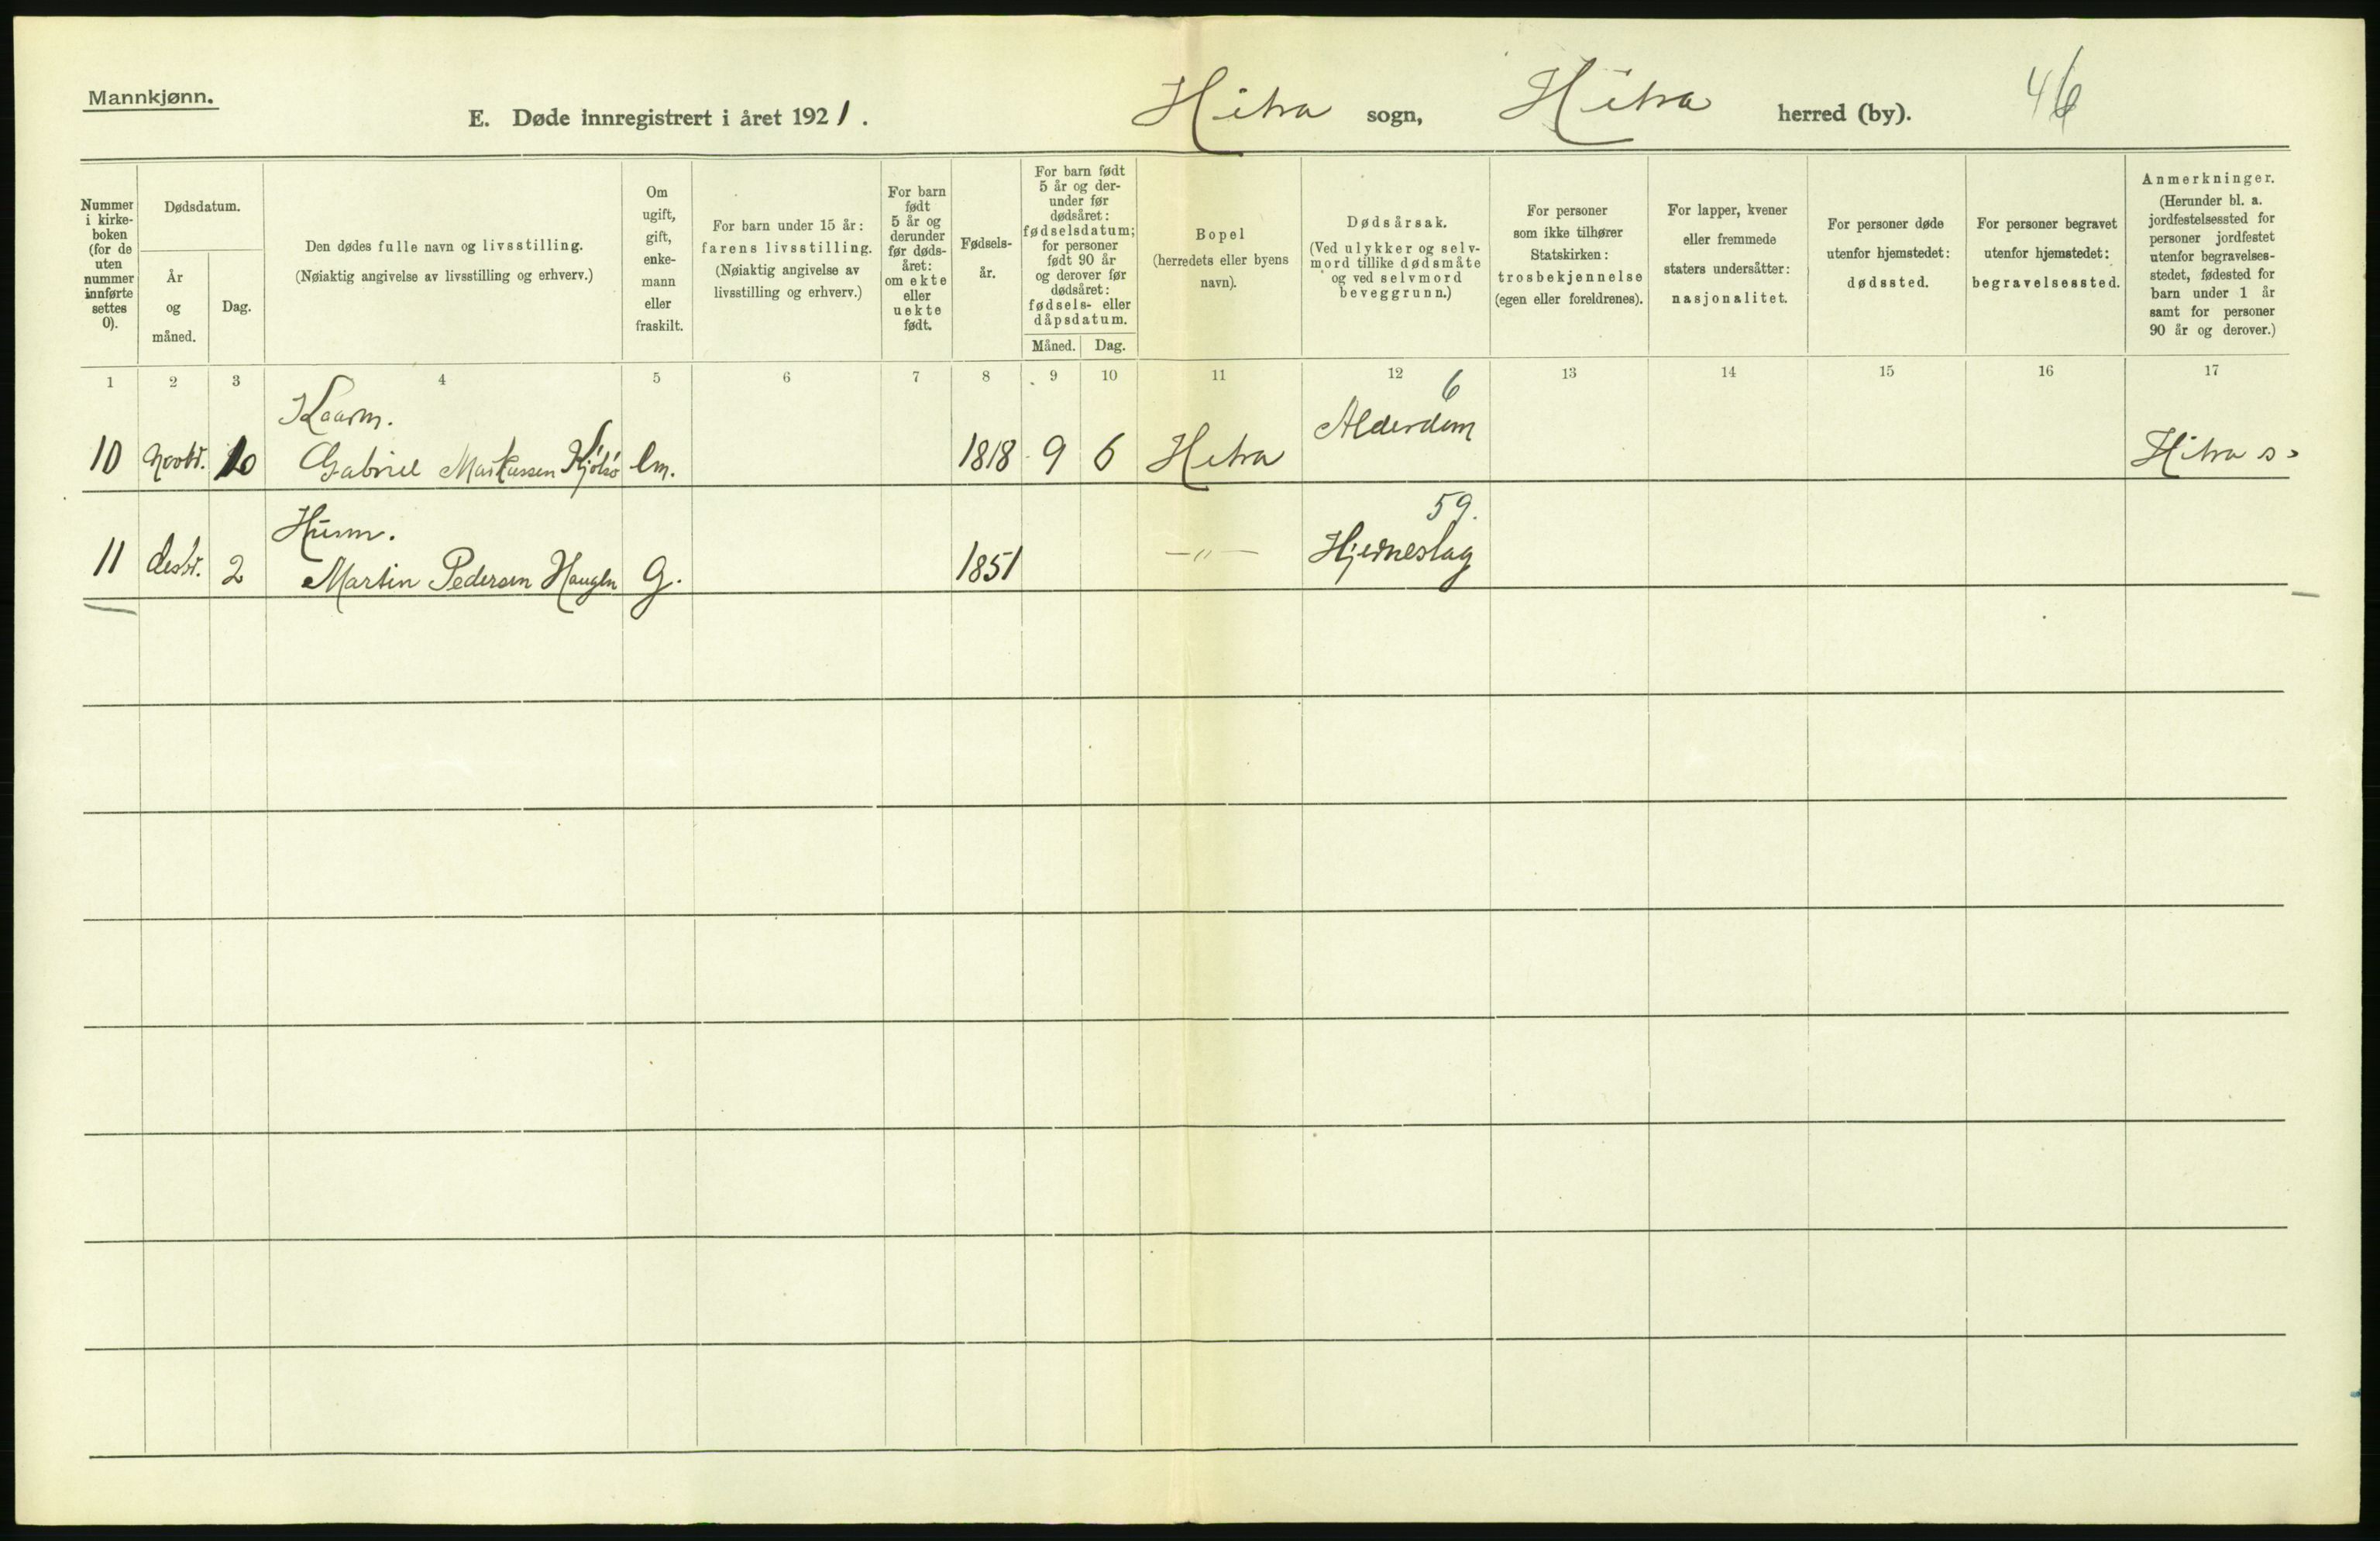 Mannkjønn.
E. Døde innregistrert i året 1921. Hitra sogn, Hitra herred (by). 46
Nummer i kirke-boken (for de uten nummer innførte settes 0).
Dødsdatum.
År og måned.
Dag.
Den dødes fulle navn og livsstilling.
(Nøiaktig angivelse av livsstilling og erhverv.)
Om ugift, gift, enke-mann eller fraskilt.
For barn under 15 år:
farens livsstilling.
(Nøiaktig angivelse av
livsstilling og erhverv.)
For barn født 5 år og derunder før døds-året: om ekte eller uekte født.
Fødsels-år.
For barn født
5 år og der-
under før
dødsåret:
fødselsdatum;
for personer
født 90 år
og derover før
dødsåret:
fødsels- eller
dåpsdatum.
Måned. Dag.
Bopel
(herredets eller byens
navn).
Dødsårsak.
(Ved ulykker og selv-
mord tillike dødsmåte
og ved selvmord
beveggrunn.)
For personer
som ikke tilhører
Statskirken:
trosbekjennelse
(egen eller foreldrenes).
For lapper, kvener
eller fremmede
staters undersåtter:
nasjonalitet.
For personer døde
utenfor hjemstedet:
dødssted.
For personer begravet
utenfor hjemstedet:
begravelsessted.
Anmerkninger.
(Herunder bl. a.
jordfestelsessted for
personer jordfestet
utenfor begravelses-
stedet, fødested for
barn under 1 år
samt for personer
90 år og derover.)
1 2 3 4 5 6 7 8 9 10 11 12 13 14 15 16 17
Kaarm. 6
10 Novbr. 10 Gabriel Markussen Kjølsø Em. 1818 9 6 Hitra Alderdom Hitra s
Husm. 59.
11 desbr. 2 Martin Pedersen Haugen G. 1851 —"— Hjerneslag